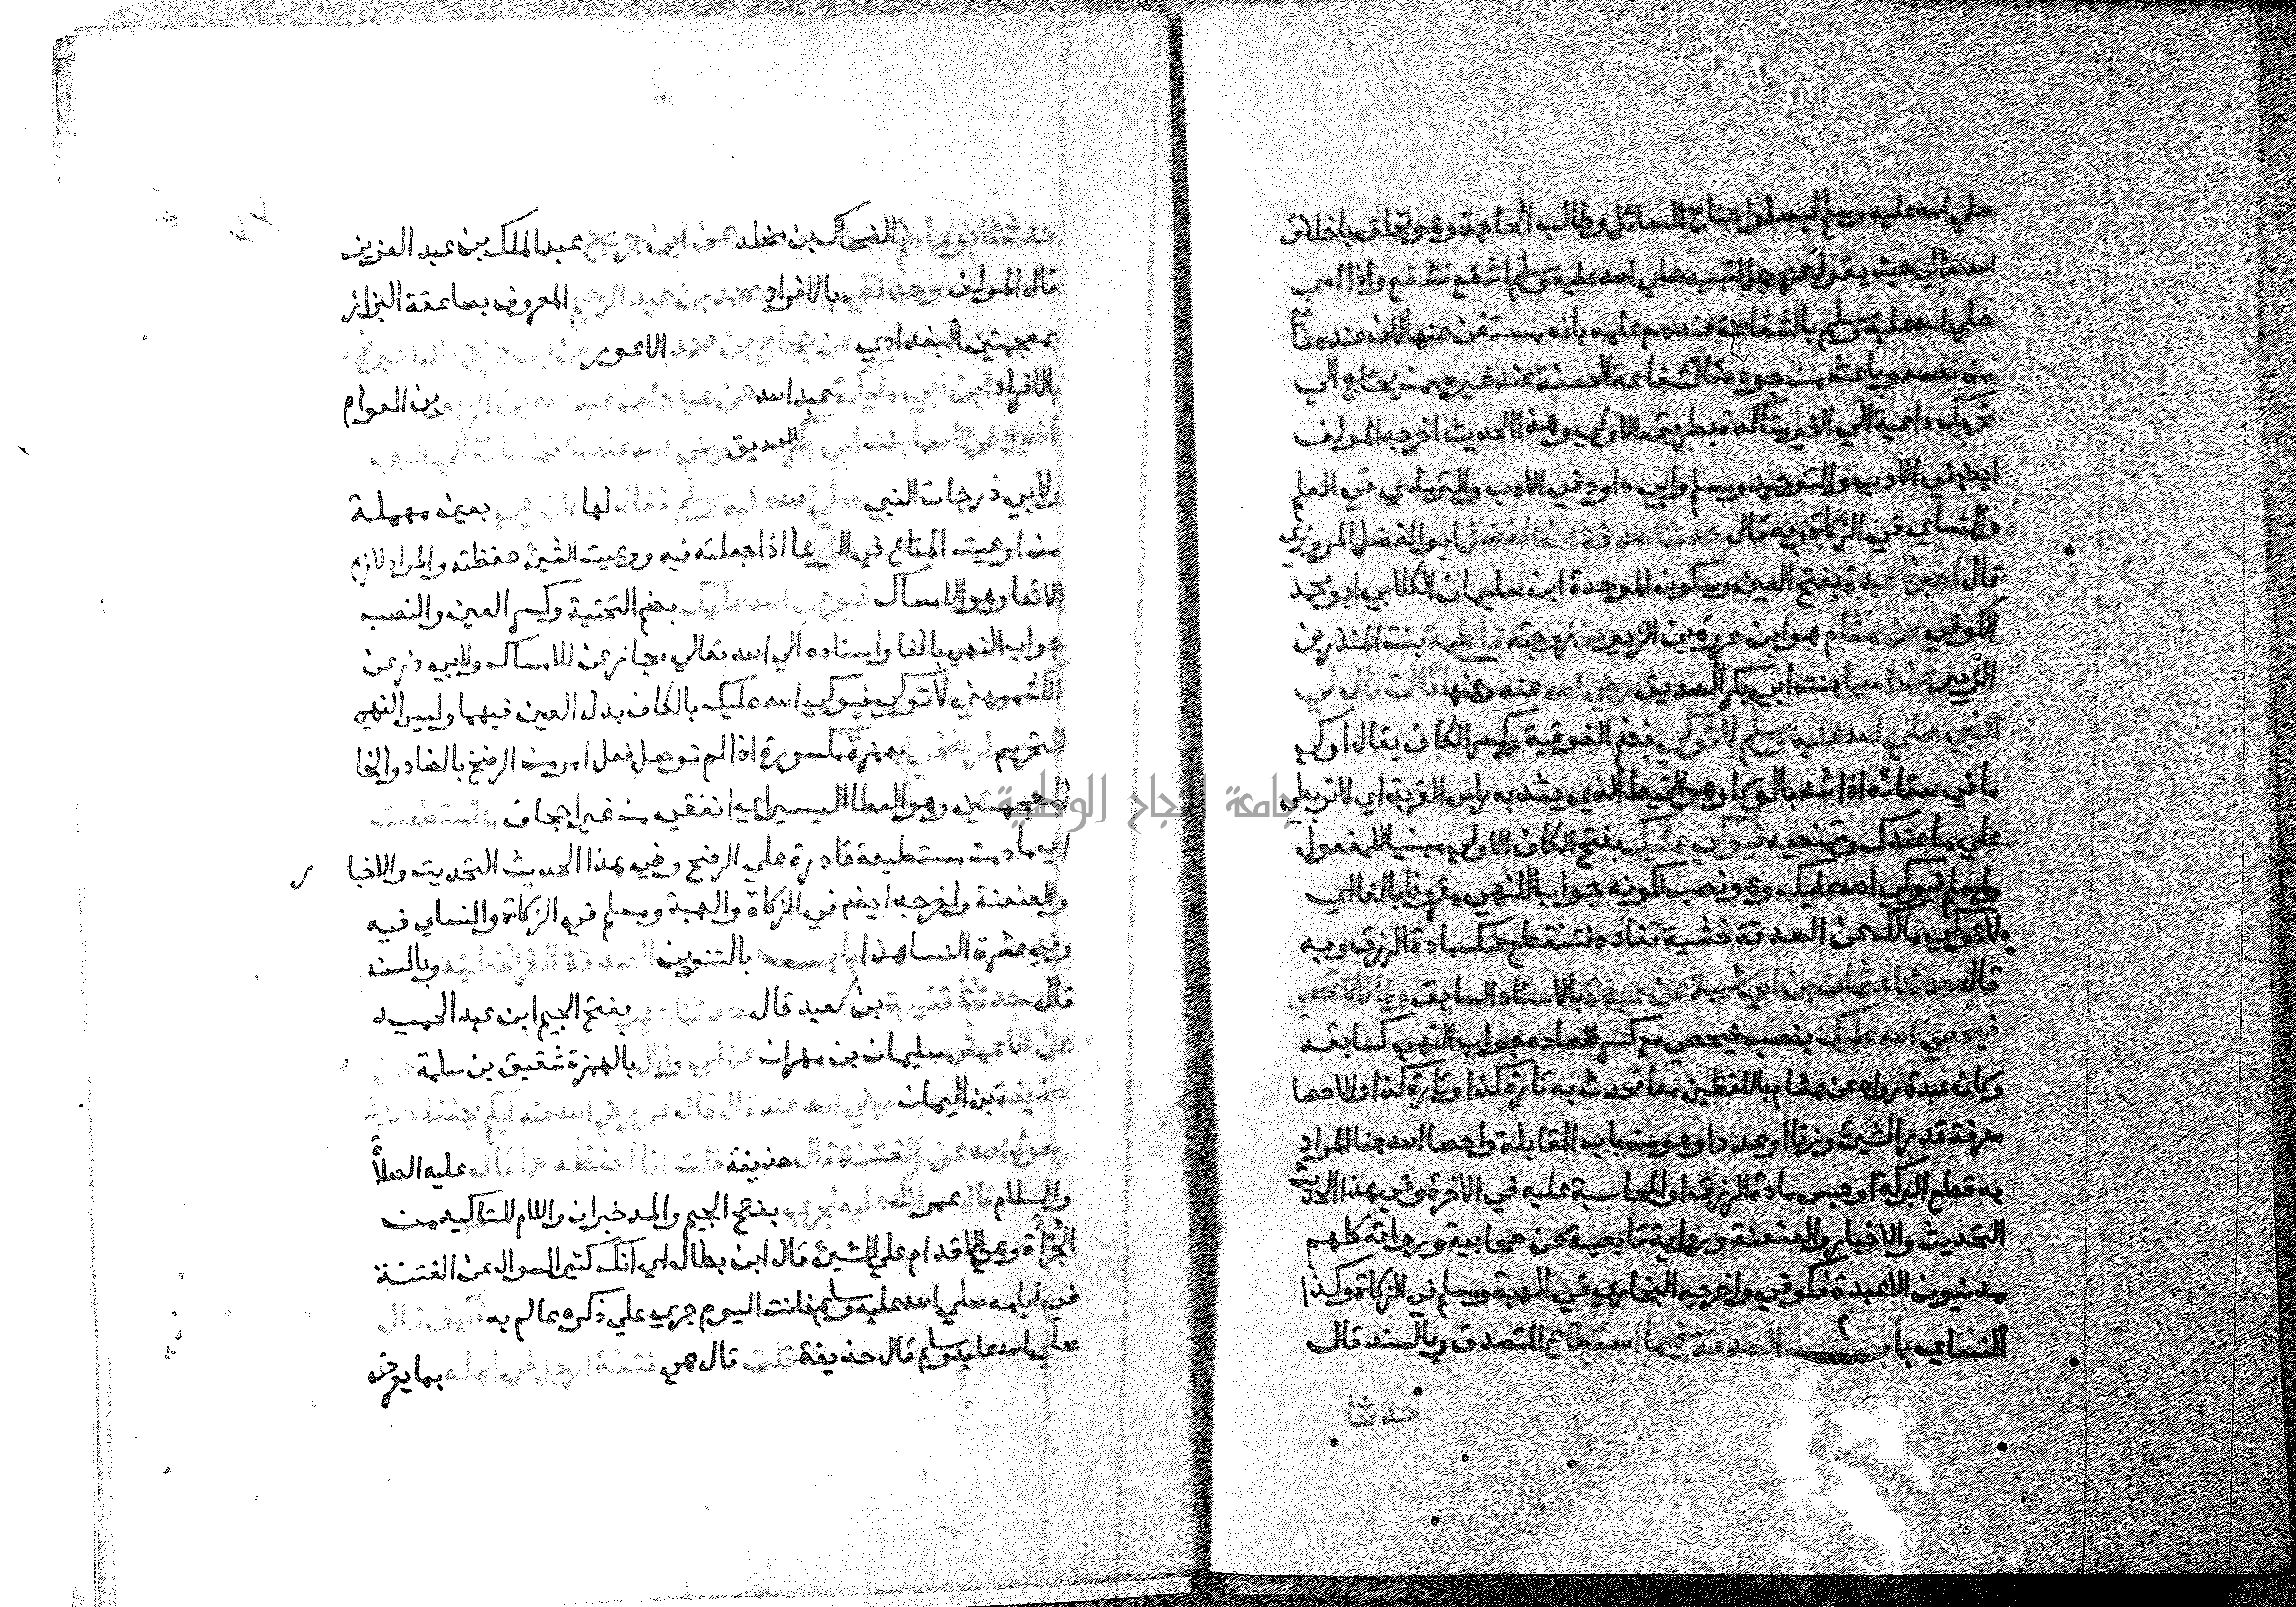 صلي الله عليه وسلم ليصلوا جناح السائل وطالب الحاجة وهو تخلق باخلاق
الله تعالي حيث يقول عز وجل لنبيه صلي الله عليه وسلم اشفع تشفع واذا امر
صلي الله عليه وسلم بالشفاعة عنده مع علمه بانه مستغن عنها لان عنده شافع
من نفسه وباعث من جوده فالشفاعة الحسنة عند غيره ممن يحتاج الي
تحريك داعية الي الخير متاكدة بطريق الاولي وهذا الحديث اخرجه المولف
ايضم في الادب والتوحيد ومسلم وابي داود في الادب والترمذي في العلم
والنساي في الزكاة وبه قال حدثنا صدقة بن الفضل ابو الفضل المروزي
قال اخبرنا عبدة بفتح العين وسكون الموحدة ابن سليمان الكلابي ابو محمد
الكوفي عن هشام هو ابن عروة بن الزبير عن زوجته فاطمة بنت المنذر بن
الزبير عن اسما بنت ابي بكر الصديق رضي الله عنه وعنها قالت قال لي
النبي صلي الله عليه وسلم لا توكي بضم الفوقية وكسر الكاف يقال اوكي
ما في سقائه اذا شده بالوكا وهو الخيط الذي يشد به راس القربة اي لا تربطي
علي ما عندك وتمنعيه فيوكي عليك بفتح الكاف الاولي مبنيا للمفعول
ولمسلم فيوكي الله عليك وهو نصب لكونه جواب اللنهي مقرونا بالفا اي
لا توكي مالك عن الصدقة خشية نفاده فتنقطع عنك مادة الرزق وبه
قال حدثنا عثمان بن ابي شيبة عن عبدة بالاسناد السابق وقال لا تحصي
فيحصي الله عليك بنصب فيحصي مع كسر صاده جواب النهي كسابقه
وكان عبدة رواه عن هشام باللفظين معا فحدث به تارة كذا وتارة كذا والاحصا
معرفة قدر الشيئ وزنا او عددا وهو من باب المقابلة واحصا الله هنا المراد
به قطع البركة او حبس مادة الرزق او المحاسبة عليه في الاخرة وفي هذا الحديث
التحديث والاخبار والعنعنة ورواية تابعية عن صحابية ورواته كلهم
مدنيون الا عبدة فكوفي واخرجه البخاري في الهبة ومسلم في الزكاة وكذا
النساي باب الصدقة فيما استطاع المتصدق وبالسند قال
حدثنا
حدثنا ابو عاصم الضحاك بن مخلد عن ابن جريج عبد الملك بن عبد العزيز
قال المولف وحدثني بالافراد محمد بن عبد الرحيم المعروف بصاعقة البزاز
بمعجمتين البغدادي عن حجاج بن محمد الاعور عن ابن جريج قال اخبرني
بالافراد ابن ابي مليكة عن عباد بن عبد الله بن الزبير بن العوام
اخبره عن اسما بنت ابي بكر الصديق رضي الله عنهما انها جات الي النبي
ولابي ذر جات النبي صلي الله عليه وسلم فقال لها لا توعي بعين مهملة
من اوعيت المتاع في الوعا اذا جعلته فيه ووعيت الشيئ حفظته والمراد لازم
الايعا وهو الامساك فيوعي الله عليك بضم التحتية وكسر العين والنصب
جواب النهي بالفا واسناده الي الله تعالي مجاز عن الامساك ولابي ذر عن
الكشميهني لا توكي فيوكي الله عليك بالكاف بدل العين فيهما وليس النهي
للتحريم ارضخي بهمزة مكسورة اذا لم توصل فعل امر من الرضخ بالضاد والخا
المعجمتين وهو العطا اليسير اي انفقي من غير اجحاف ما استطعت
اي ما دمت مستطيعة قادرة علي الرضخ وفي هذا الحديث التحديث والاخبا ر
والعنعنة واخرجه ايضم في الزكاة والهبة ومسلم في الزكاة والنساي فيه
وفي عشرة النسا هذا باب بالتنوين الصدقة تكفر الخطيئة وبالسند
قال حدثنا قتيبة بن سعيد قال حدثنا جرير بفتح الجيم ابن عبد الحميد
عن الاعمش سليمان بن مهران عن ابي وائل بالهمزة شقيق بن سلمة عن
حذيفة بن اليمان رضي الله عنه قال قال عمر رضي الله عنه ايكم يحفظ حديث
رسول الله عن الفتنة قال حذيفة قلت انا احفظه كما قال عليه الصلاة
والسلام قال عمر انك عليه لجري بفتح الجيم والمد خبر ان واللام للتاكيد من
الجُرْأة وهي الاقدام علي الشيئ قال ابن بطال اي انك كثير السوال عن الفتنة
في ايامه صلي الله عليه وسلم فانت اليوم جري علي ذكره عالم به فكيف قال
صلي الله عليه وسلم قال حذيفة قلت قال هي فتنة الرجل في اهله بما يعرض
جامعة النجاح الوطنية